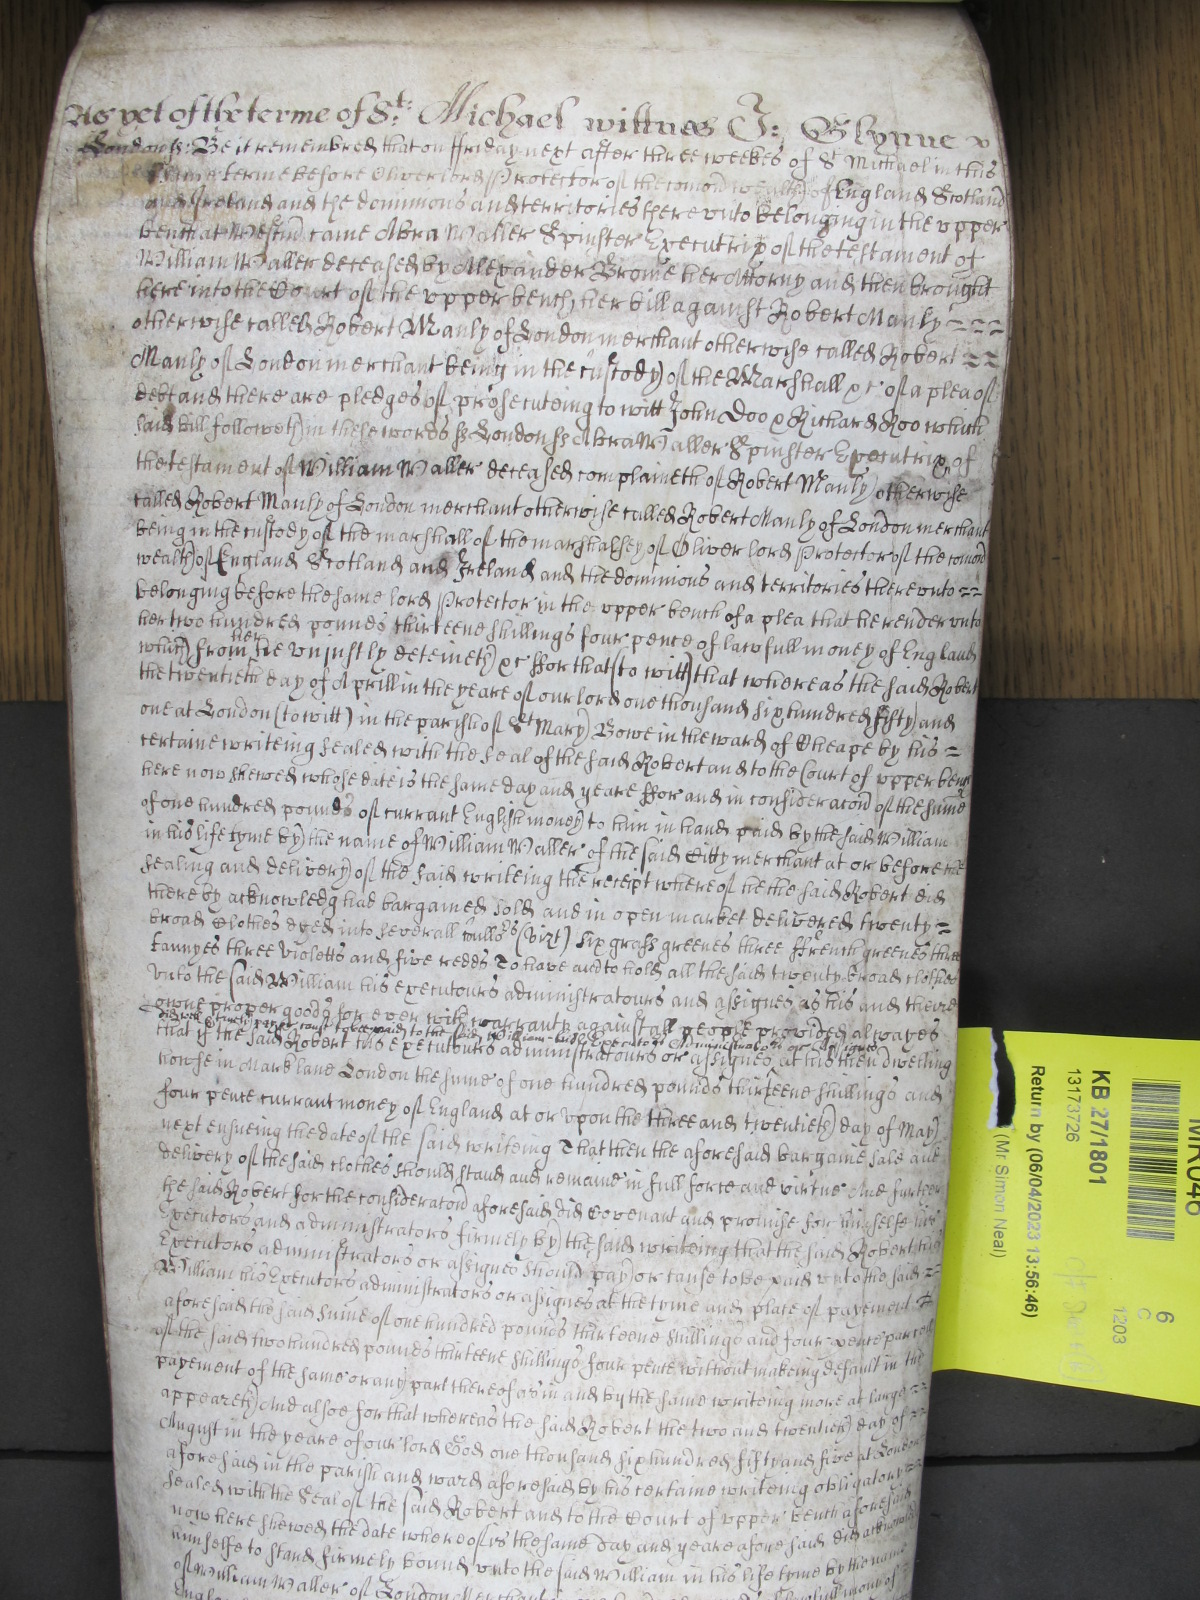 As yet of the terme of St: Michael wittnes J: Glynne
London ss: Be it remembred that on ffriday next after three weekes of St Michael in this
same terme before Oliver lord Protector of the comon wealth of England Scotland
and Ireland and the dominions and territories thereunto belonging in the upper
bench at Westmr came Abra Waller Spinster Executrix of the testament of
William Waller deceased by Alexander Browne her Attorny and then brought
here into the Court of the upper bench her bill against Robert Manly
otherwise called Robert Manly of London merchant otherwise called Robert
Manly of London merchant being in the custody of the Marshall &c of a plea of
debt and there are pledges of prosecuteing to witt John Doo & Richard Roo which
said bill followeth in these words ss London ss Abra Waller Spinster Executrix of
the testament of William Waller deceased complaineth of Robert Manly otherwise
called Robert Manly of London merchant otherwise called Robert Manly of London merchant
being in the custody of the marshall of the marshalsey of Oliver lord Protector of the comon
wealth of England Scotland and Ireland and the dominions and territories thereunto
belonging before the same lord Protector in the upper bench of a plea that he render unto
her two hundred pounds thirteene shillings four pence of lawfull money of England
which from her he unjustly deteineth &c ffor that (to witt) that whereas the said Robert
the twentieth day of Aprill in the yeare of our lord one thousand six hundred fifty and
one at London (to witt) in the parish of St Mary Bowe in the ward of Cheape by his
certaine writeing sealed with the seal of the said Robert and to the Court of upper bench
here now shewed whose date is the same day and yeare ffor and in consideracon of the sume
of one hundred pounds of currant English money to him in hand paid by the said William
in his life tyme by the name of William Waller of the said Citty merchant at or before the
sealing and delivery of the said writeing the receipt whereof he the said Robert did
thereby acknowledg had bargained sold and in open market delivered twenty
broad Clothes dyed into severall cullors (vizt) six grass greenes three ffrench greenes three
tannyes three violetts and five redds To have and to hold all the said twenty broad clothes
unto the said William his executours administratours and assignes as his and their
owne proper goods for ever with warranty against all people provided alwayes
did well & truely pay or cause to bee paid to the said William his Executors Administrators or assignes
that if the said Robert his executours administratours or assignes at his then dwelling
howse in Mark lane London the sume of one hundred pounds thirteene shillings and
four pence currant money of England at or upon the three and twentieth day of May
next ensueing the date of the said writeing That then the aforesaid bargaine sale and
delivery of the said clothes should stand and remaine in full force and virtue And further
the said Robert for the consideracon aforesaid did Covenant and promise for himselfe his
Executors and administrators firmely by the said writeing that the said Robert his
Executors administrators or assignes should pay or cause to be paid unto the said
William his Executors administrators or assignes at the tyme and place of payement
aforesaid the said sume of one hundred pounds thirteene shillings and four pence parcell
of the said two hundred pounds thirteene shillings four pence without makeing default in the
payement of the same or any part thereof as in and by the same writeing more at large
appeareth And alsoe for that whereas the said Robert the two and twentieth day of
August in the yeare of our lord God one thousand six hundred fifty and five at London
aforesaid in the parish and ward aforesaid by his certaine writeing obligatory
sealed with the seal of the said Robert and to the Court of upper bench aforesaid
now here shewed the date whereof is the same day and yeare aforesaid did acknowledg
himselfe to stand firmely bound unto the said William in his life tyme by the name
of William Waller of London Merchant in one hundred
MR046
6
C
1203
KB 27/1801
13173726
Return by (06/04/2023 13:56:46)
(Mr Simon Neal)